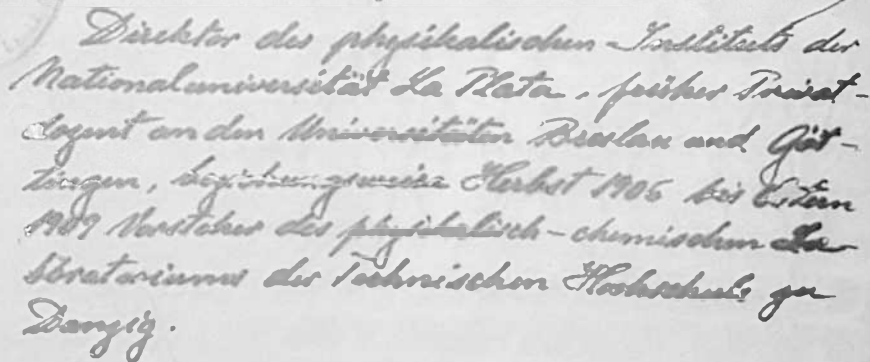 Direktor des physikalischen-Instituts der
Nationaluniversität La Plata, früher Privat-
dozent an den Universitäten Breslau und Göt-
tingen, beziehungsweise Herbst 1906 bis Ostern
1909 Vorsteher des physikalisch-chemischen La
boratoriums der Technischen Hochschule zu
Danzig.